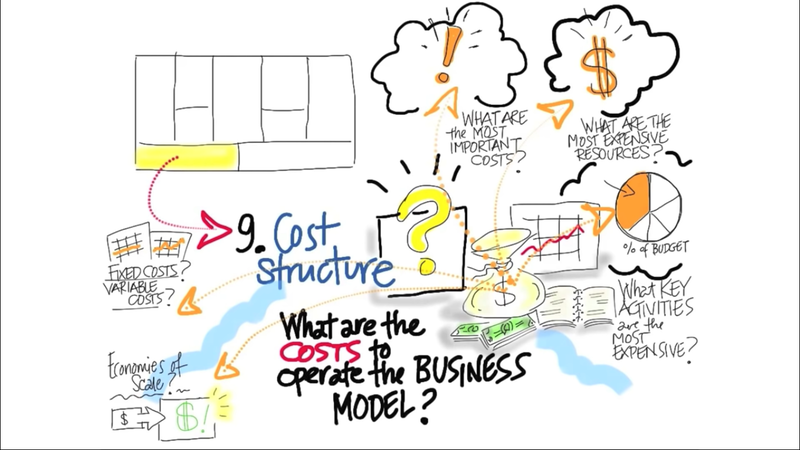 !
$
WHAT ARE
the MOST
IMPORTANT
COSTS?
WHAT ARE THE
MOST EXPENSIVE
RESOURCES?
?
9. Cost
structure
% of BUDGET
FIXED COSTS?
VARIABLE
COSTS?
$
What KEY
ACTIVITIES
are the
MOST
EXPENSIVE?
What are the
COSTS to
operate the BUSINESS
MODEL?
Economies of
Scale?
$
$!